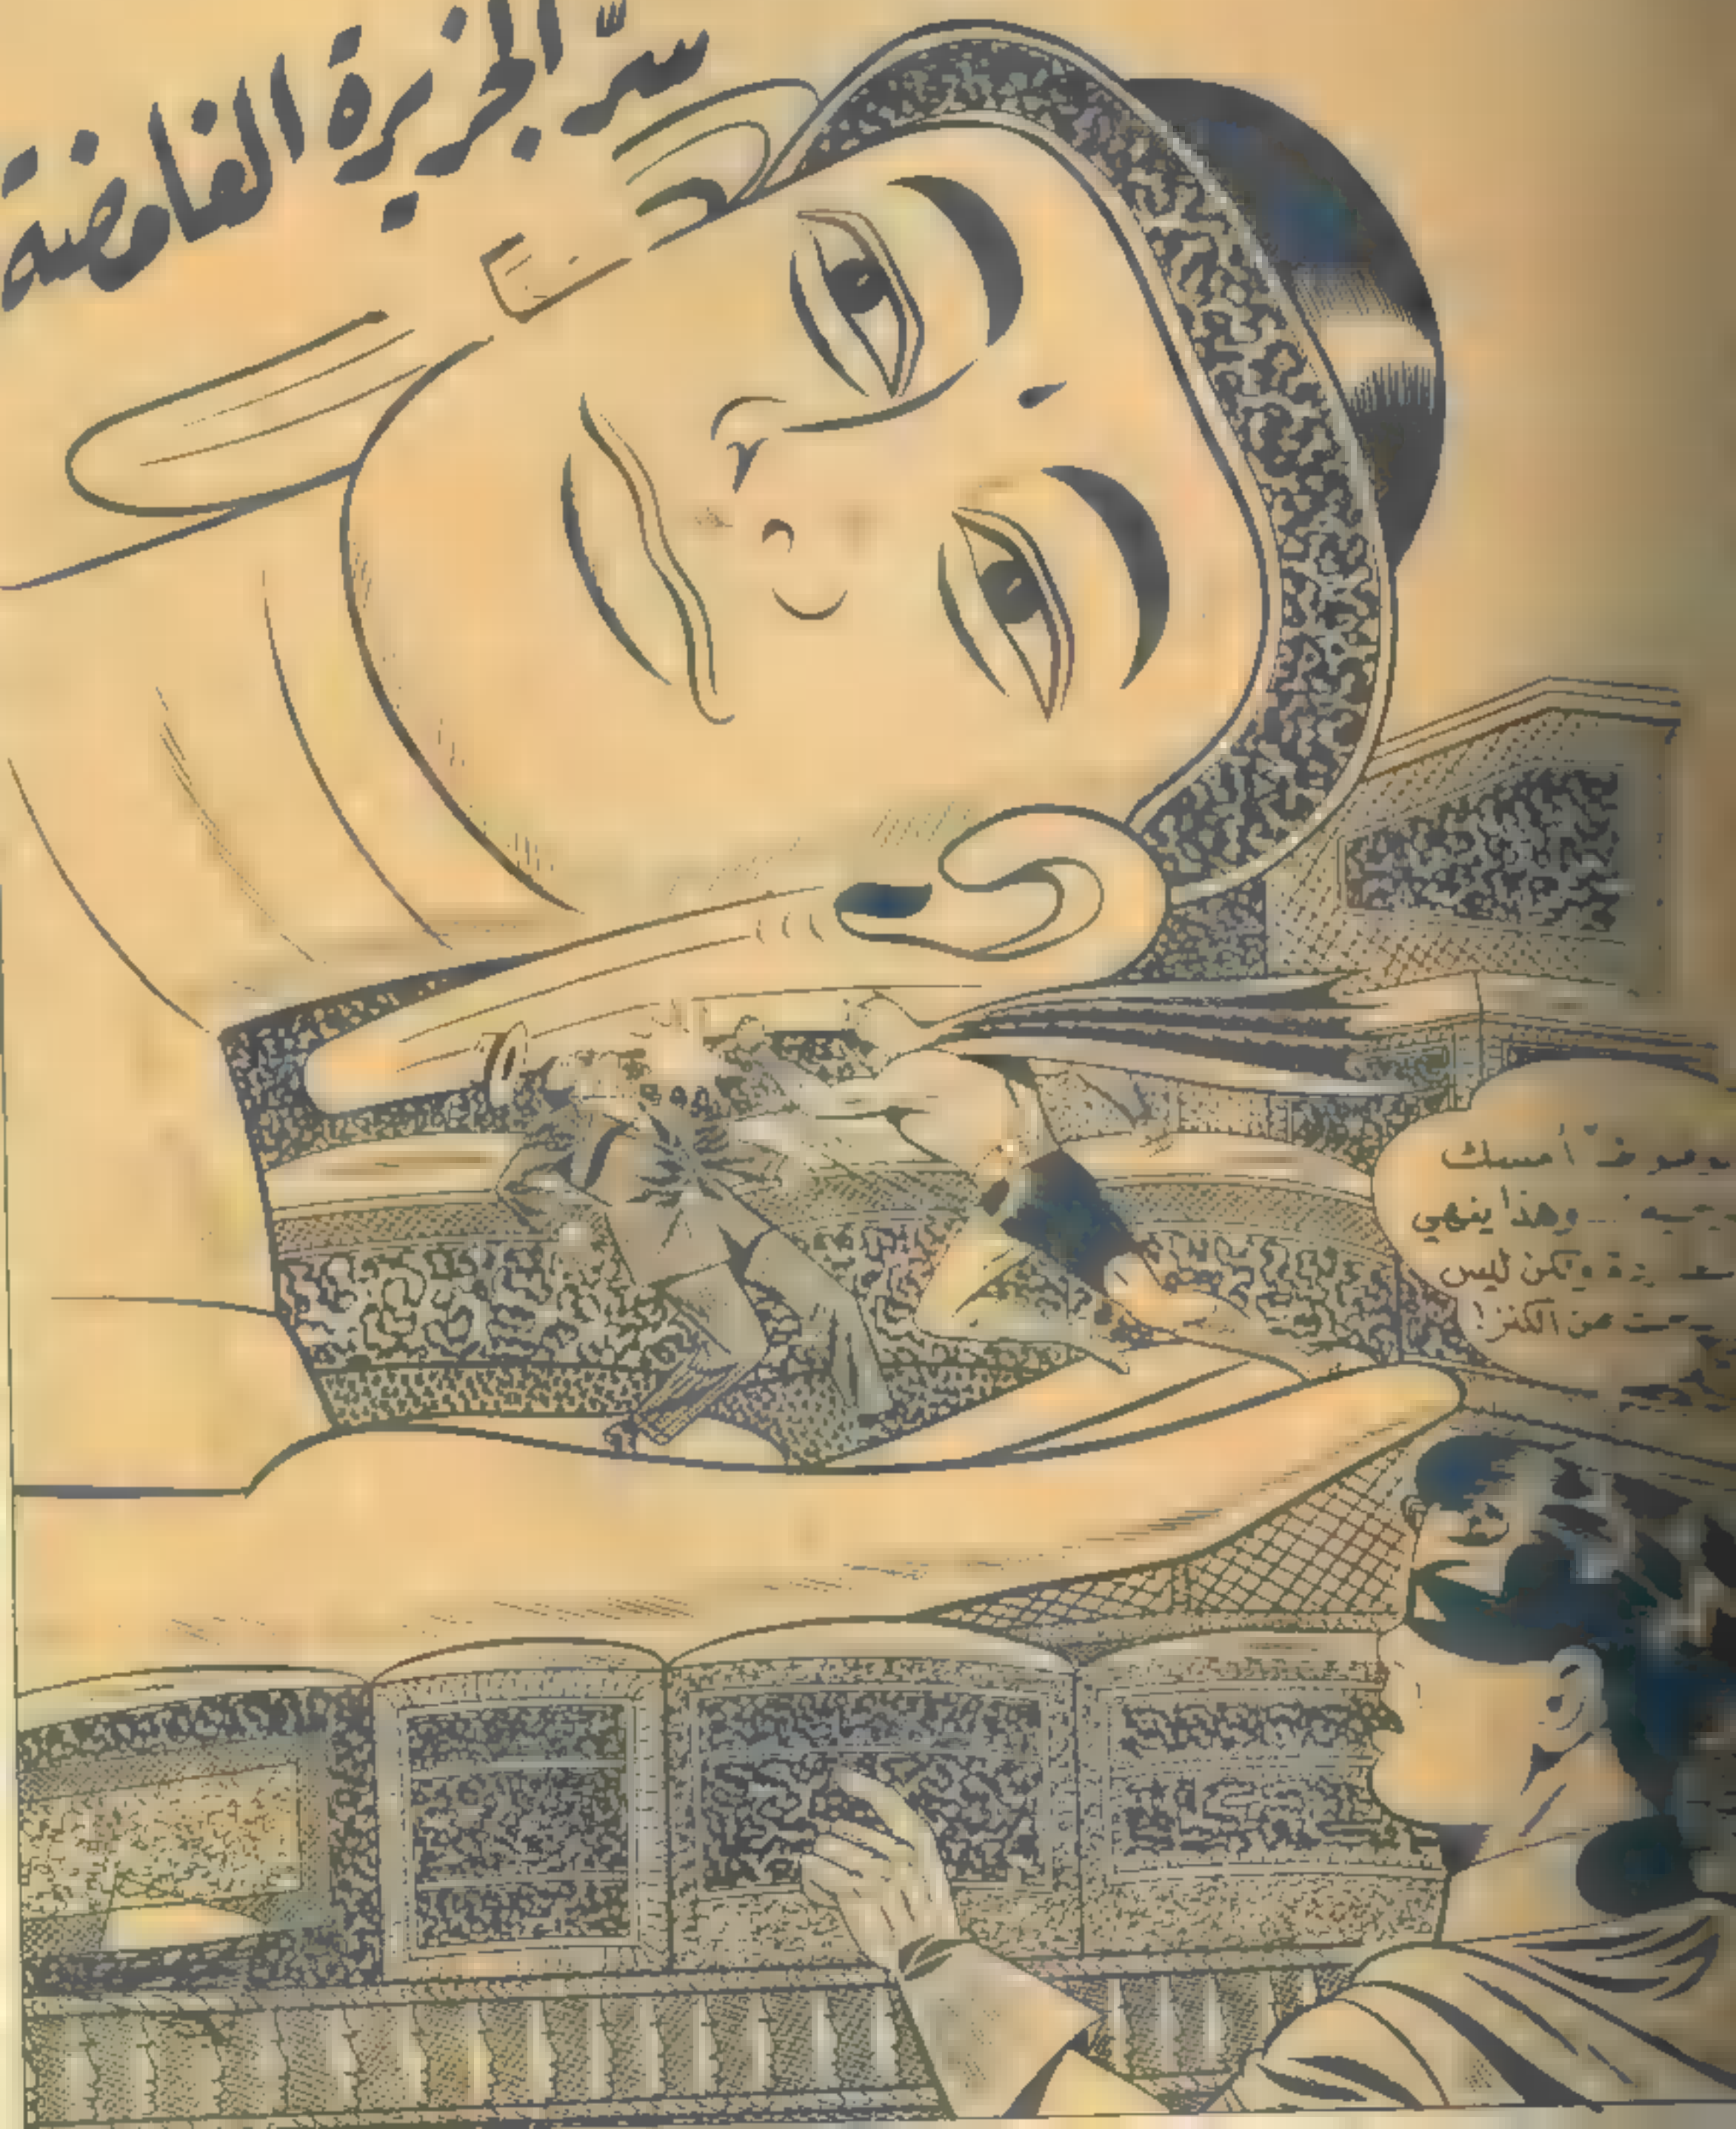 سرّ الجزيرة الغامضة
أمسك
وهذا ينهي
ولكن ليس
عن الكنز!